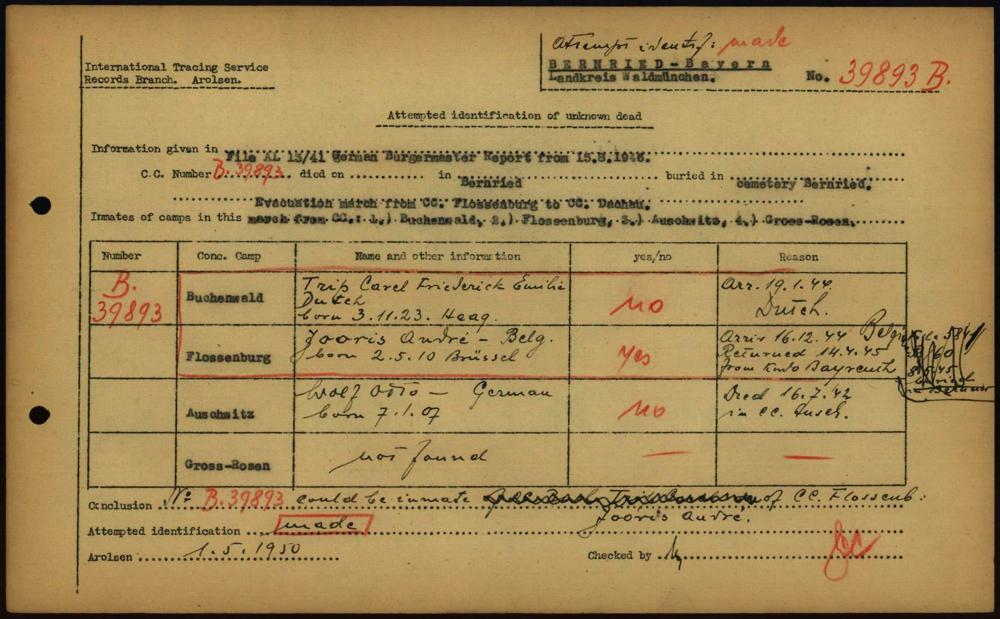 Attempt identif: made
International Tracing Service
Records Branch. Arolsen.
BERNRIED-Bayern
Landkreis Waldmünchen.
No. 39893 B.
Attempted identification of unknown dead
Information given in File AL 13/41 German Burgermaster Report from 15.8.1946.
C.C. Number B. 39893 died on in Bernried buried in cemetery Bernried.
Evacuation march from CC. Flossenburg to CC. Dachau.
Inmates of camps in this march from CC.: 1.) Buchenwald, 2.) Flossenburg, 3.) Auschwitz, 4.) Gross-Rosen.
Number Conc. Camp Name and other information yes/no Reason
B. 39893
Buchenwald
Trip Carel Friederick Emilie
Dutch
born 3.11.23. Haag.
no
Arr. 19.1.44.
Dutch.
Flossenburg
Jooris André - Belg.
born 2.5.10 Brüssel
Yes
Arris 16.12.44
Returned 14.4.45
from Kmdo Bayreuth
Auschwitz
Wolf Otto - German
born 7.1.07
no
Died 16.7.42
in CC. Ausch.
Gross-Rosen
not found
—
—
Conclusion No B. 39893 could be inmate of CC. Flossenb:
Jooris André.
Attempted identification made
Arolsen 1.5.1950
Checked by